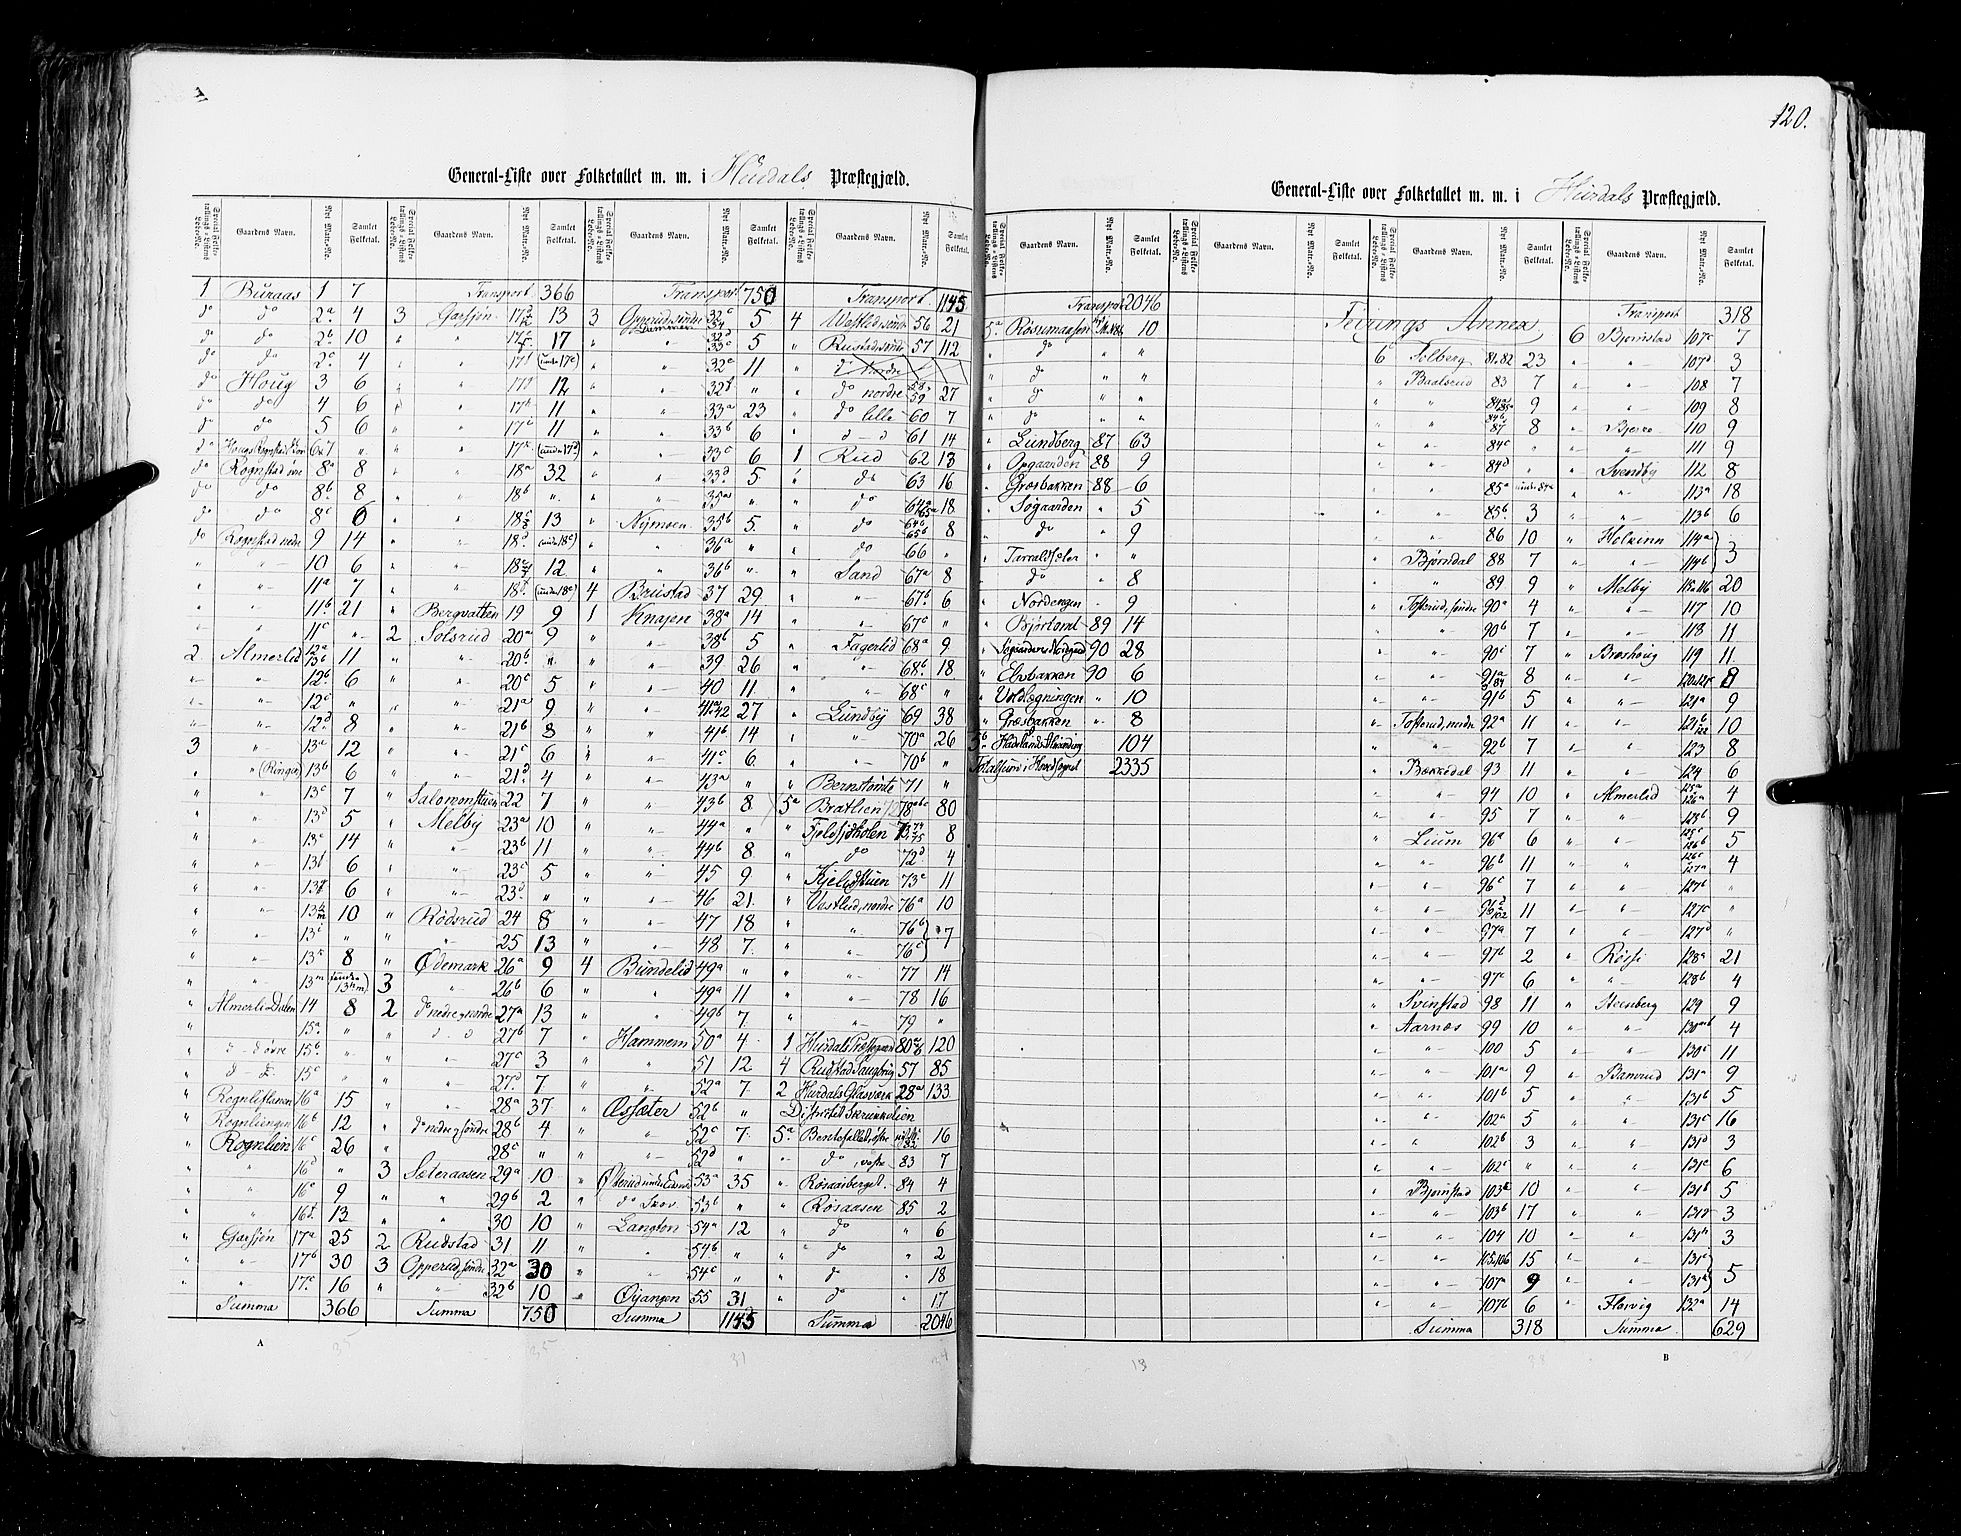 120.
General-Liste over Folketallet m. m. i Hurdals Præstegjæld.
Special Folketællings-Listens Løbe-No. Gaardens Navn. Nyt Matr.-No. Samlet Folketal.
1 Buraas 1 7
do do 2a 4
do do 2b 10
do do 2c 4
do Houg 3 6
do do 4 6
do do 5 6
do Rognstad øvre 8a 8
do do 8b 8
do do 8c 6
do Rognstad nedre 9 14
" " 10 6
" " 11a 7
" " 11b 21
" " 11c "
2 Almerlid 12a 13b 11
" " 12b 6
" " 12c "
" " 12d 8
3 " 13a 12
" " (Ringen) 13b 6
" " 13c 7
" " 13d 5
" " 13e 14
" " 13f 6
" " 13g 6
" " 10
" " 13i "
" " 13k 8
" " 13m (under 13hm)
" Almerli-Dalen 14 8
" 15a "
" do øvre 15b "
" 15c "
" 16a 15
" Rognliengen 16b 12
" Rognlien 16c 26
" " 16d "
" " 16e 9
" " 16f 13
" Garsjøn 17a 25
" " 17b 30
" " 17c 16
Summa 366
Transport 366
3 Garsjøn 13
" " 17
" " 17f (under 17e)
" " 17g 12
" " 17h 11
" " 17i 11
" " 17k (under 17d)
" " 18a 32
" " 18b "
" " 13
" " 18d (under 18c)
" " 12
" " 18f (under 18e)
" Bergvatten 19 9
2 Solsrud 20a 9
" " 20b "
" " 20c 5
" " 21a 9
" " 21b 8
" " 21c 6
" " 21d 4
" Salomonstuen 22 7
" Melby 23a 10
" " 23b 11
" " 23c 5
" " 23d "
" Rødsrud 24 8
" " 25 13
" Ødemark 26a 9
3 " 26b 6
2 do nedre nordre 27a 13
" do do 27b 7
" " 27c 3
" " 27d 7
" " 28a 37
" do nedre søndre 28b 4
" " 28c "
3 Sæteraasen 29a 10
" " 29b 2
" " 30 10
2 Rudstad 31 11
3 Opperud, søndre 32a 30
" " 32b 10
Summa 750
Transport 750
3 Opperud søndre 32c 5
" " 5
" " 32e 11
" " 32f "
" " 33a 23
" " 33b 6
" " 33c 6
" " 33d 5
" " "
" Nymoen 35b 5
" " 36a "
" " 36b "
4 Brustad 37 29
1 Knajen 38a 14
" " 38b 5
" " 39 26
" " 40 11
" " 41a 42 27
" " 41b 14
" " 41c 6
" " 43a "
" " 43b 8
" " 44a "
" " 44b 8
" " 45 9
" " 46 21
" " 47 18
" " 48 7
4 Bundelid 49a "
" " 49a 11
" " 49b 7
" Hammern 50a 4
" " 51 12
" " 52a 7
" Øssæter 52b "
" " 52c 7
" " 52d "
" 53a 35
" do Skov 53b "
" Langton 54a 12
" " 54b "
" " 54c "
" Øijangen 55 31
Summa 1145
Transport 1145
4 Westlid søndre 56 21
" Rustad, søndre 57 112
" do nordre
" do nordre 58, 59 27
" do lille 60 7
" do do 61 14
1 Rud 62 13
" do 63 16
" do 64a 65a 18
" do 64b 65b 8
" do 66 "
" Sand 67a 8
" " 67b 6
" " 67c "
" Fagerlid 68a 9
" " 68b 18
" " 68c "
" Lundby 69 38
" " 70a 26
" " 70b "
" Bernstomte 71 "
5a Bratlien 80
" Fjeldsjøholen 8
" do 72d 4
" Kjeldstuen 73c 11
" Vestlid, nordre 76a 10
" " 76b
" " 76c 7
" " 77 14
" " 78 16
" " 79 "
1 Hurdals Præstegaard 80 120
4 Rudstad Saugbrug 57 85
2 Hurdals Glasværk 28a 133
Distrikt Skrukkelien
5a Bentefallet, østre 82 16
" do, vestre 83 7
" Røsaasberget 84 4
" Røsaasen 85 2
" do " 6
" do " 2
" do " 18
" do " 17
Summa 2046
A
General-Liste over Folketallet m. m. i Hurdals Præstegjæld.
Special Folketællings-Listens Løbe-No. Gaardens Navn. Nyt Matr.-No. Samlet Folketal.
Transport 2046
5a Røssumaasen 10
" do " "
" do " "
" do " "
" Lundberg 87 63
" Opgaarden 88 9
" Græsbakken 88 6
" Søgaarden " 5
" do 9
" Tarraldseter " "
" do 8
" Nordengen 9
" Bjørtomt 89 14
" Søgaardens Nordgard 90 28
" Elvebakken 90 6
" Voldlægningen " 10
" Græsbakken " 8
5b Hadelands Almending 104
Totalsum i Hovedsognet 2335
Feirings Annex
6 Solberg 81. 82 23
" Baalsrud 83 7
" " 84a 85a 9
" " 84b 87 8
" " 84c "
" " 84d "
" " 85a under 84a
" " 85b 3
" " 86 10
" Bjørndal 88 7
" " 89 9
" Tosterud, søndre 90a 4
" " 90b 7
" " 90c 7
" " 91a 8
" " 91b 5
" Tosterud, nordre 92a 11
" " 92b 7
" Bækkedal 93 11
" " 94 10
" " 95 7
" Lium 96a 6
" " 96b 11
" " 96c 7
" " 96d 102 11
" " 97a 7
" " 97b 2
" " 97c 6
" Svinstad 98 11
" Aarnæs 99 10
" " 100 5
" " 101a 9
" " 101b 5
" " 102a 5
" " 102b 3
" " 102c "
" Bjørnstad 103a 10
" " 103b 17
" " 104 10
" " 105, 106 15
" " 107a 9
" " 107b 6
Summa 318
Transport 318
6 Bjørnstad 107c 7
" " 107d 3
" " 108 7
" " 109 8
" 110 9
" " 111 9
" Svendby 112 8
" " 113a 18
" " 113b 6
" Holkinn 114a
" " 114b 3
" Melby 115 a 116 20
" " 117 10
" " 118 11
" Bræshoug 119 11
" " 8
" " 121a 9
" " 121b 122 10
" " 123 8
" " 124 6
" Almerlid 125a 126a 4
" " 9
" " 125c 126b 5
" " 126c 127a 4
" " 127b "
" " 127c "
" " 127d "
" Røise 128a 21
" " 128b 4
" Steenberg 129 9
" " 130ab 4
" " 130c 11
" Bamrud 131a 9
" " 131b 5
" " 131c 16
" " 131d 3
" " 131e 6
" " 131f 5
" " 131g 3
" " 131h 3
" " 131i
" " 131k 5
" Flesvig 132a 14
Summa 629
B